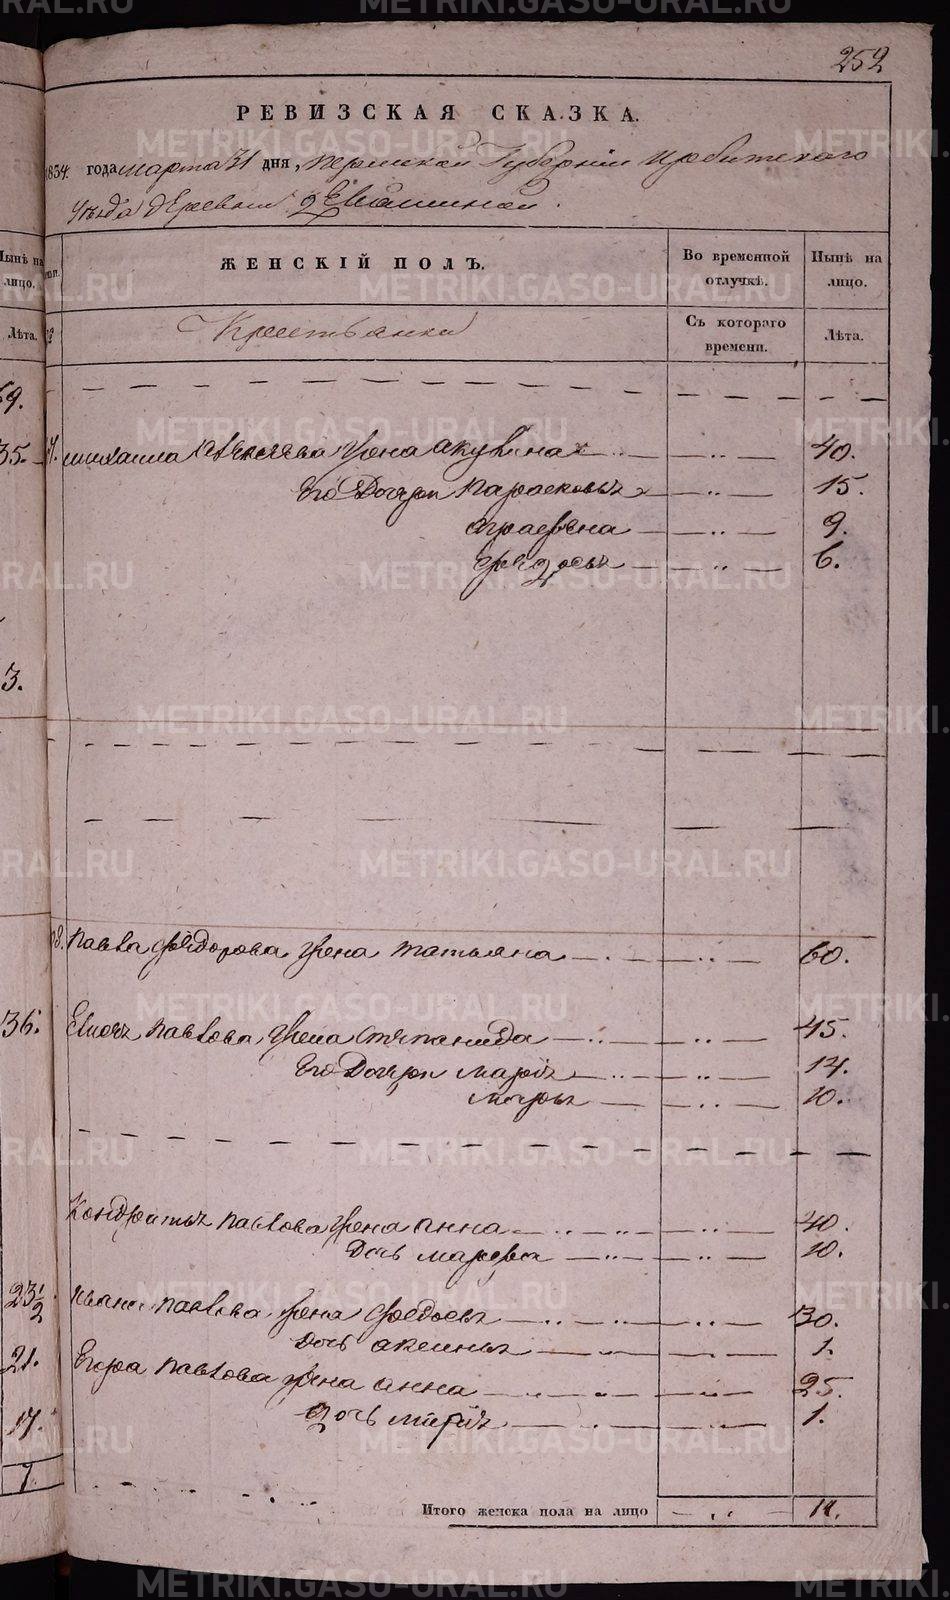 252
РЕВИЗСКАЯ СКАЗКА.
года марта 31 дня, Пермской Губернии Ирбитского
Уѣзда дЕревни
Нынѣ на лицо.
ЖЕНСКІЙ ПОЛЪ.
Во временной отлучкѣ.
Нынѣ на лицо.
Лѣта.
Крестьянки
Съ котораго времени.
Лѣта.
69.
35.
михаила Алексѣева жена акулина 40.
Его Дочери Парасковья 15.
аграфена 9.
федосья 6.
3.
Павла Федорова жена татьяна 60.
36.
Павлова жена степанида 45.
Его Дочери марія 14.
10.
Кондратья павлова жена анна 40.
Дочь марфа 10.
23 1/2
Ивана павлова жена Федосья 30.
дочь аксинья 1.
21.
Егора павлова жена анна 25.
дочь марія 1.
17.
7
Итого женска пола на лицо 14.
METRIKI.GASO-URAL.RU